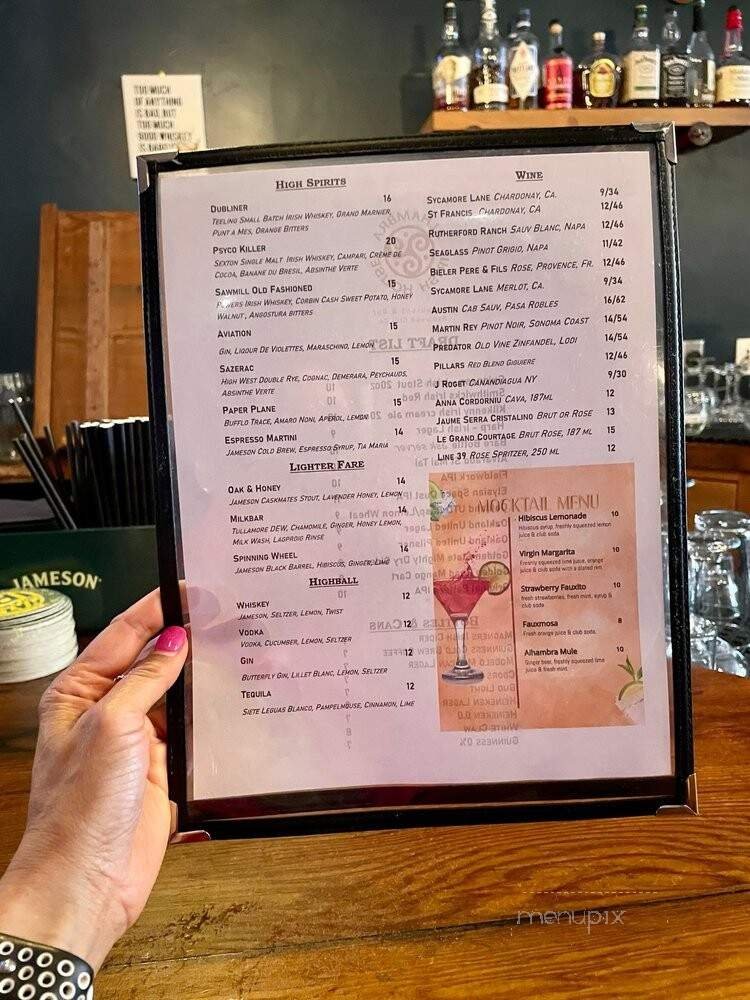 TOO MUCH
OF ANYTHING
IS BAD, BUT
TOO MUCH
GOOD WHISKEY
IS BARELY
HIGH SPIRITS
DUBLINER 16
TEELING SMALL BATCH IRISH WHISKEY, GRAND MARNIER,
PUNT A MES, ORANGE BITTERS
PSYCO KILLER 20
SEXTON SINGLE MALT IRISH WHISKEY, CAMPARI, CRÈME DE
COCOA, BANANE DU BRESIL, ABSINTHE VERTE
SAWMILL OLD FASHIONED 15
POWERS IRISH WHISKEY, CORBIN CASH SWEET POTATO, HONEY
WALNUT, ANGOSTURA BITTERS
AVIATION 15
GIN, LIQOUR DE VIOLETTES, MARASCHINO, LEMON
SAZERAC 15
HIGH WEST DOUBLE RYE, COGNAC, DEMERARA, PEYCHAUDS,
ABSINTHE VERTE
PAPER PLANE 15
BUFFLO TRACE, AMARO NONI, APEROL, LEMON
ESPRESSO MARTINI 14
JAMESON COLD BREW, ESPRESSO SYRUP, TIA MARIA
LIGHTER FARE
OAK & HONEY 14
JAMESON CASKMATES STOUT, LAVENDER HONEY, LEMON
MILKBAR 14
TULLAMORE DEW, CHAMOMILE, GINGER, HONEY, LEMON,
MILK WASH, LAGPROIG RINSE
SPINNING WHEEL 14
JAMESON BLACK BARREL, HIBISCUS, GINGER, LIME
HIGHBALL
WHISKEY 12
JAMESON, SELTZER, LEMON, TWIST
VODKA 12
VODKA, CUCUMBER, LEMON, SELTZER
GIN 12
BUTTERFLY GIN, LILLET BLANC, LEMON, SELTZER
TEQUILA 12
SIETE LEGUAS BLANCO, PAMPELMOUSE, CINNAMON, LIME
WINE
SYCAMORE LANE CHARDONAY, CA. 9/34
ST FRANCIS CHARDONAY, CA 12/46
RUTHERFORD RANCH SAUV BLANC, NAPA 12/46
SEAGLASS PINOT GRIGIO, NAPA 11/42
BIELER PERE & FILS ROSE, PROVENCE, FR. 12/46
SYCAMORE LANE MERLOT, CA. 9/34
AUSTIN CAB SAUV, PASA ROBLES 16/62
MARTIN REY PINOT NOIR, SONOMA COAST 14/54
PREDATOR OLD VINE ZINFANDEL, LODI 14/54
PILLARS RED BLEND GIGUIERE 12/46
J ROGET CANANDIAGUA NY 9/30
ANNA CORDORNIU CAVA, 187ML 12
JAUME SERRA CRISTALINO BRUT OR ROSE 13
LE GRAND COURTAGE BRUT ROSE, 187 ML 15
LINE 39 ROSE SPRITZER, 250 ML 12
MOCKTAIL MENU
Hibiscus Lemonade 10
Hibiscus syrup, freshly squeezed lemon
juice & club soda
Virgin Margarita 10
Freshly squeezed lime juice, orange
juice & club soda with a slated rim
Strawberry Fauxito 10
fresh strawberries, fresh mint, syrup &
club soda
Fauxmosa 8
Fresh orange juice & club soda,
Alhambra Mule 10
Ginger beer, freshly squeezed lime
juice & fresh mint.
JAMESON
menupix